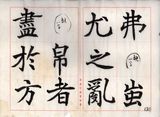 弗蚩
尤之亂
帛者
盡於方